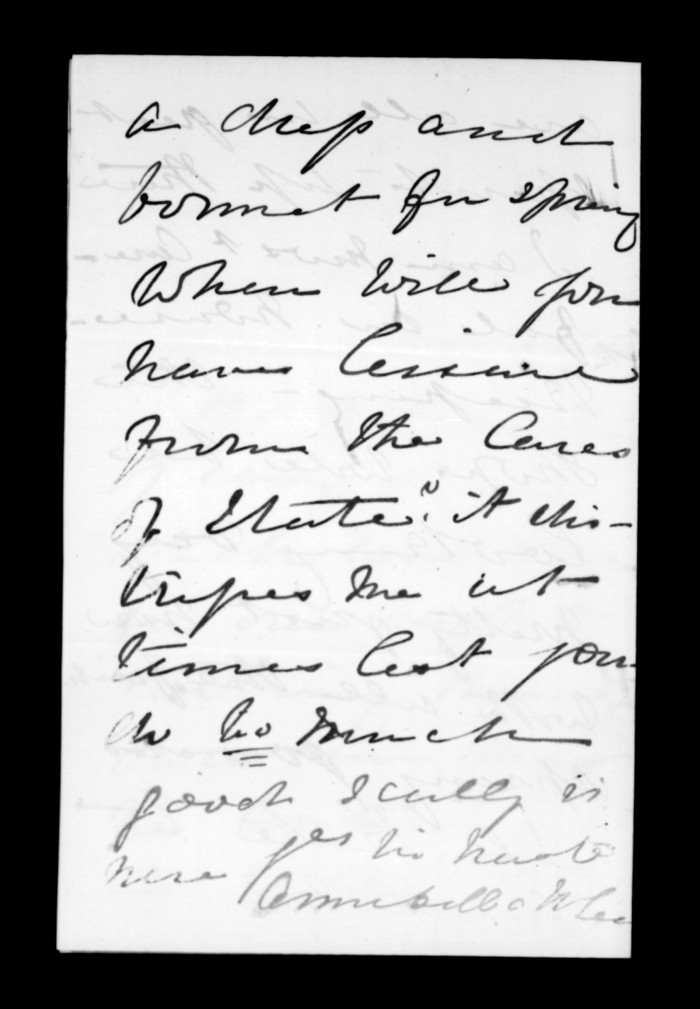 a dress and
bonnet for spring
When will you
have leisure
from the Cares
of State? it dis-
tresses me at
times lest you
do too much
good Scully is
here yrs in haste
Annabella McLean